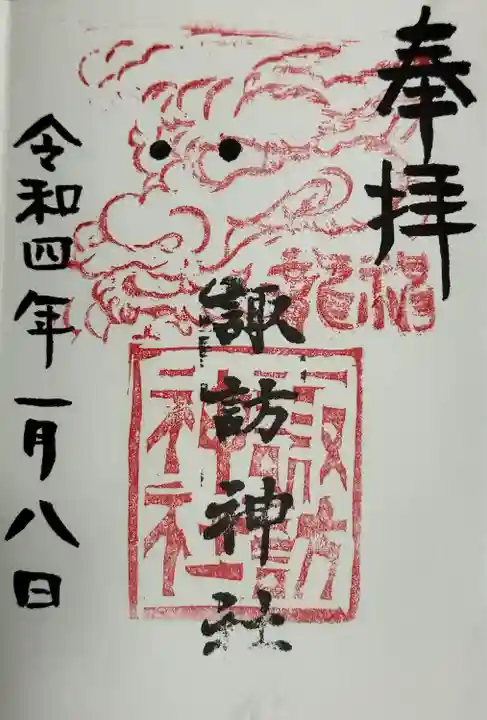 奉拝
福龍
諏訪神社
諏訪神社
令和四年一月八日